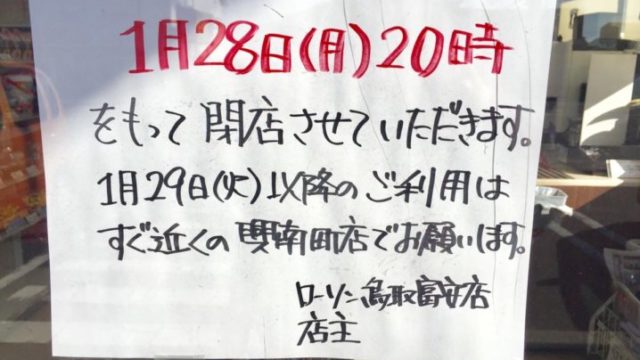 1月28日(月)20時
をもって閉店させていただきます。
1月29日(火)以降のご利用は
すぐ近くの興南町店でお願いします。
ローソン鳥取富安店
店主